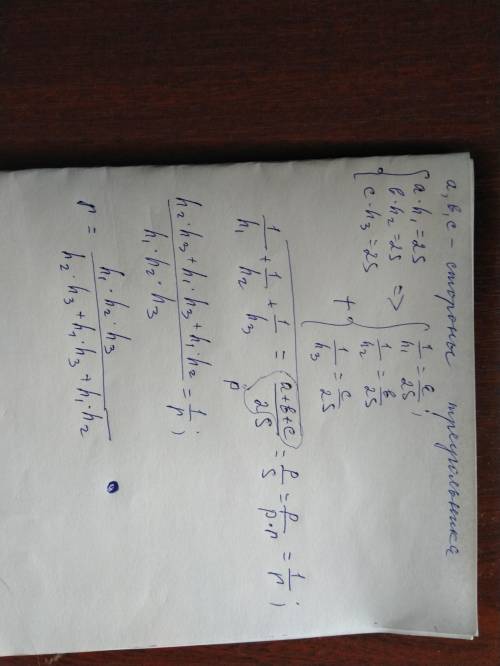 а, в, с – стороны треугольника
{ a·h₁=2S
{ в·h₂=2S => { 1/h₁ = a/2S ;
{ c·h₃=2S + { 1/h₂ = в/2S
{ 1/h₃ = c/2S
1/h₁ + 1/h₂ + 1/h₃ = (a+в+c)/2S = p/S = p/(p·r) = 1/r ;
p
(h₂·h₃+h₁·h₃+h₁·h₂)/(h₁·h₂·h₃) = 1/r ;
r = (h₁·h₂·h₃)/(h₂·h₃+h₁·h₃+h₁·h₂)